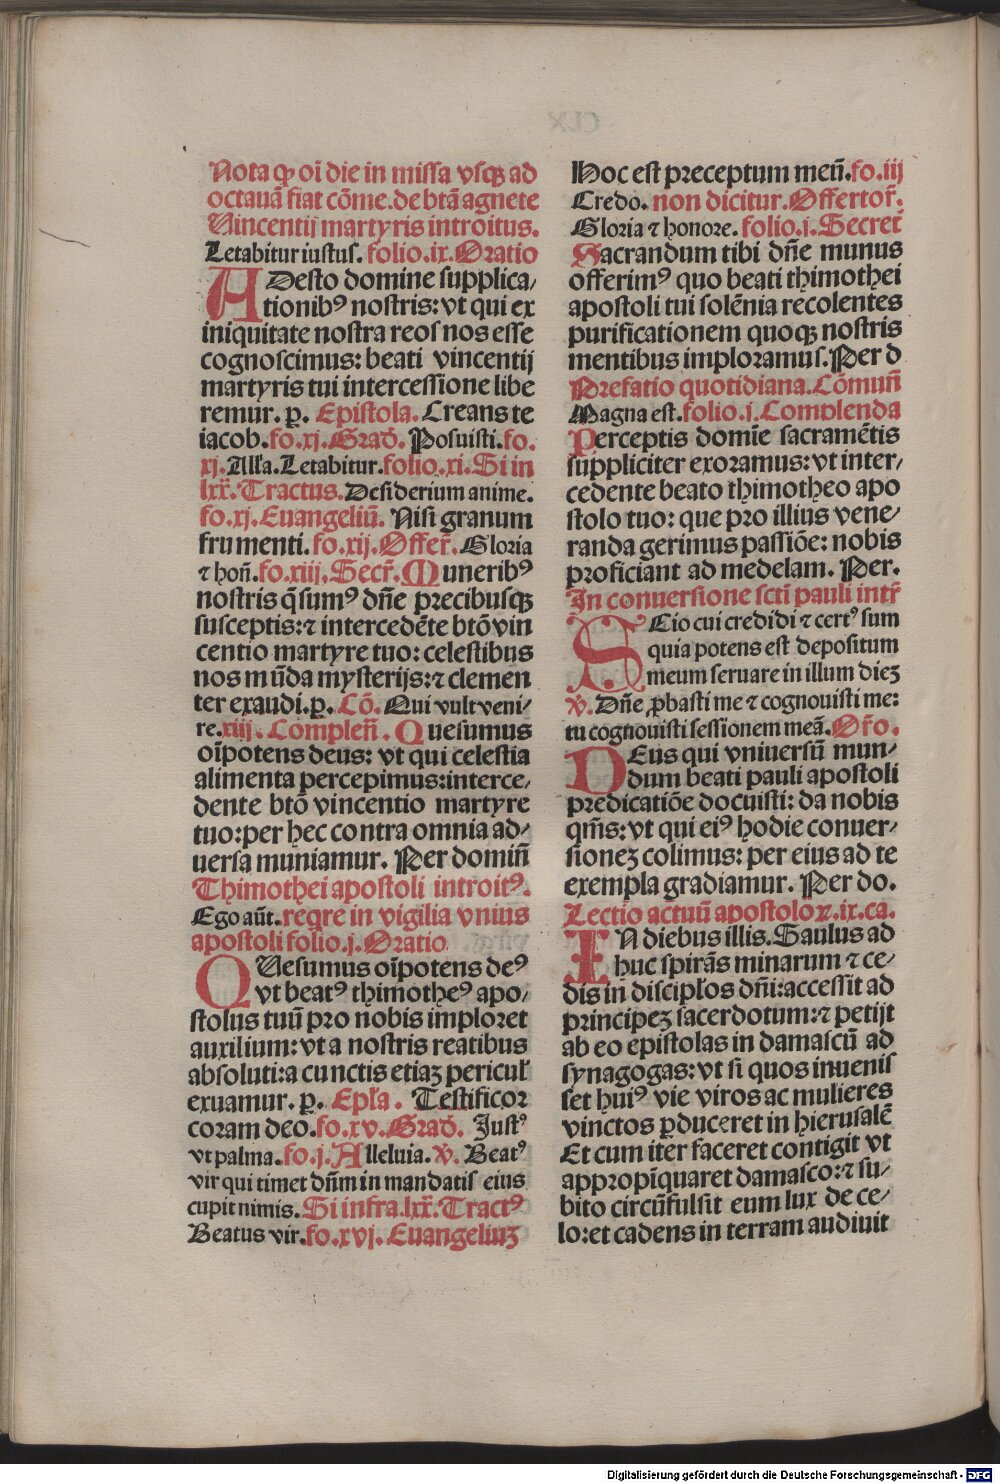 Nota ꝙ oī die in missa vsqꝫ ad
octauā fiat cōme. de btā agnete
Vincentij martyris introitus.
Letabitur iustus. folio. ix. Oratio
ADesto domine supplica⸗
tionibꝰ nostris: vt qui ex
iniquitate nostra reos nos esse
cognoscimus: beati vincentij
martyris tui intercessione libe
remur. p̲. Epistola. Creans te
iacob. fo. xj. Grad̄. Posuisti. fo.
xj. Alľa. Letabitur. folio. xi. Si in
lxx̄. Tractus. Desiderium anime.
fo. xj. Euangeliū. Nisi granum
frumenti. fo. xij. Offer̄. Gloria
⁊ hoñ. fo. xiij. Secr̄. Muneribꝰ
nostris q̄sumꝰ dn̄e precibusqꝫ
susceptis: ⁊ intercedēte btō vin
centio martyre tuo: celestibus
nos mūda mysterijs: ⁊ clemen
ter exaudi. p̲. Cō. Qui vult veni⸗
re. xiij. Compleñ. Quesumus
oīpotens deus: vt qui celestia
alimenta percepimus: interce⸗
dente btō vincentio martyre
tuo: per hec contra omnia ad⸗
uersa muniamur. Per domiñ
Thimothei apostoli introitꝰ.
Ego aūt. reqre in vigilia vnius
apostoli folio. j. Oratio
QUesumus oīpotens deꝰ
vt beatꝰ thimotheꝰ apo⸗
stolus tuū pro nobis imploret
auxilium: vt a nostris reatibus
absoluti: a cunctis etiaꝫ pericuľ
exuamur. p̲. Epľa. Testificor
coram deo. fo. xv. Grad̄. Justꝰ
vt palma. fo. j. Alleluia. V̄. Beatꝰ
vir qui timet dn̄m in mandatis eius
cupit nimis. Si infra. lxx̄. Tractꝰ
Beatus vir. fo. xvj. Euangeliuꝫ
Hoc est preceptum meū. fo. iij
Credo. non dicitur. Offertor̄.
Gloria ⁊ honore. folio. j. Secret̄
Sacrandum tibi dn̄e munus
offerimꝰ quo beati thimothei
apostoli tui solēnia recolentes
purificationem quoqꝫ nostris
mentibus imploramus. Per d
Prefatio quotidiana. Cōmuñ
Magna est. folio. j. Complenda
Perceptis domīe sacramētis
suppliciter exoramus: vt inter⸗
cedente beato thimotheo apo
stolo tuo: que pro illius vene⸗
randa gerimus passiōe: nobis
proficiant ad medelam. Per.
In conuersione sctī pauli intr̄
SCio cui credidi ⁊ certꝰ sum
quia potens est depositum
meum seruare in illum dieꝫ
V̄. Dn̄e ꝓbasti me ⁊ cognouisti me:
tu cognouisti sessionem meā. Or̄o.
DEus qui vniuersū mun⸗
dum beati pauli apostoli
predicatiōe docuisti: da nobis
qm̄s: vt qui eiꝰ hodie conuer⸗
sioneꝫ colimus: per eius ad te
exempla gradiamur. Per do.
Lectio actuū apostoloꝝ. ix. ca.
IN diebus illis. Saulus ad
huc spirās minarum ⁊ ce⸗
dis in discipľos dn̄i: accessit ad
principeꝫ sacerdotum: ⁊ petijt
ab eo epistolas in damascū ad
synagogas: vt si quos inuenis
set huiꝰ vie viros ac mulieres
vinctos ꝑduceret in hierusalē
Et cum iter faceret contigit vt
appropīquaret damasco: ⁊ su⸗
bito circūfulsit eum lux de ce⸗
lo: et cadens in terram audiuit
Digitalisierung gefördert durch die Deutsche Forschungsgemeinschaft - DFG